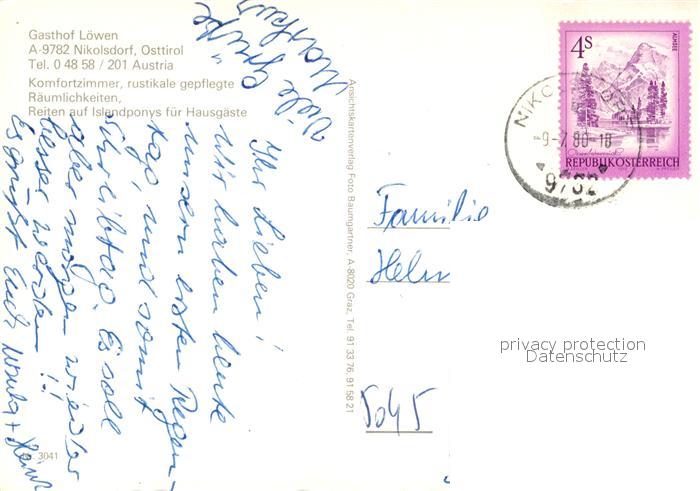 Gasthof Löwen
A-9782 Nikolsdorf, Osttirol
Tel. 0 48 58 / 201 Austria
Komfortzimmer, rustikale gepflegte
Räumlichkeiten,
Reiten auf Islandponys für Hausgäste
Viele Grüße
Markus
Ihr Lieben!
Wir haben heute
unseren ersten Regen-
tag, und somit
Schreibtag. Es soll
aber morgen wieder
besser werden!!
Es grüßt Euch Ursula + Heinz
3041
Ansichtskartenverlag Foto Baumgartner, A-8020 Graz, Tel. 91 33 76, 91 58 21
ALMSEE
4S
REPUBLIK ÖSTERREICH
-9.-7.80-18
9782
Familie
Helm
5045
privacy protection
Datenschutz